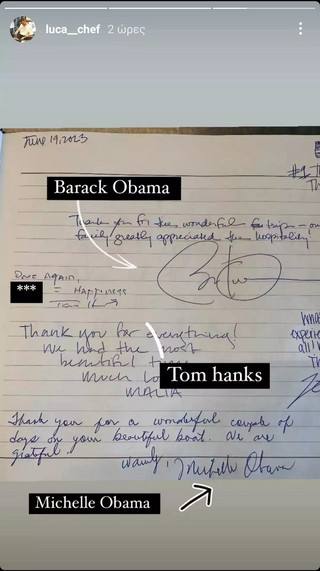 luca__chef 2 ώρες
June 19, 2023
#1
Barack Obama
Thank you for the wonderful trip – our
family greatly appreciated the hospitality
Once Again,
***
= Happiness
Thank you for everything!
we had the most
beautiful time
much lo
MALIA
Tom hanks
Thank you for a wonderful couple of
days on your beautiful boat. We are
grateful.
Warmly, Michelle Obama
Michelle Obama